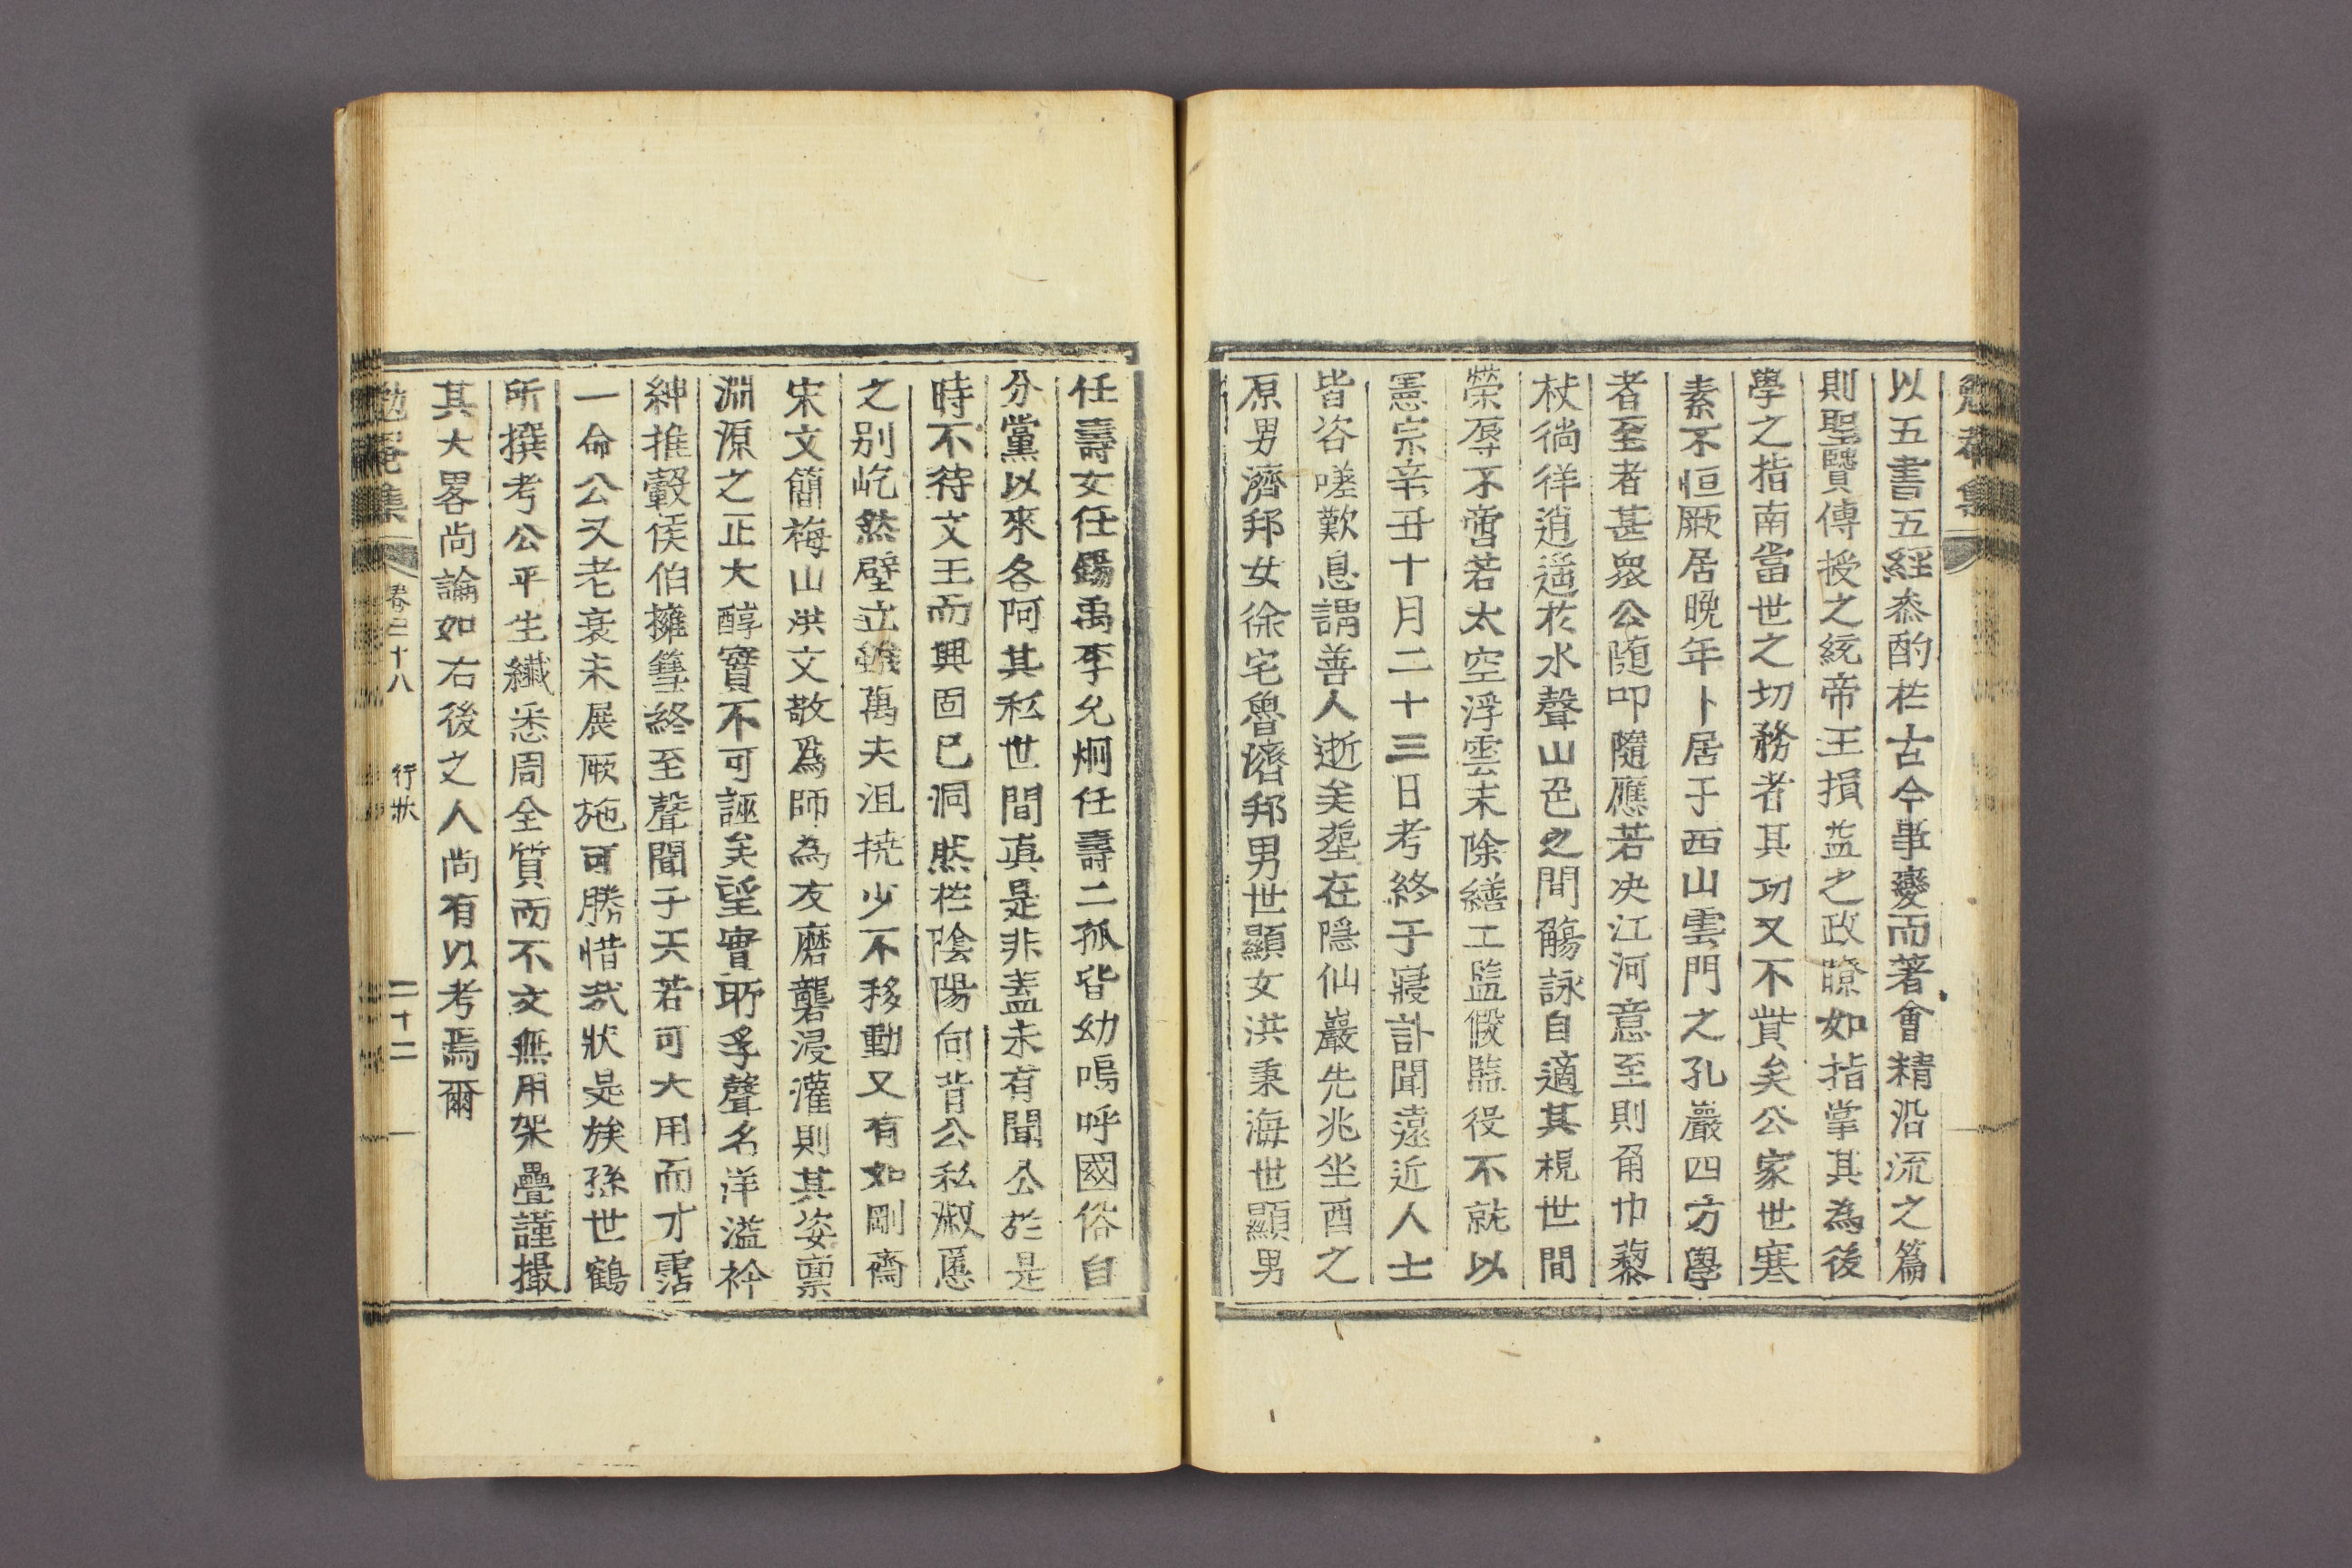 勉菴集
以五書五經叅酌於古今事變而著會精沿流之篇
則聖贒傳授之統帝王損益之政瞭如指掌其為後
學之指南當世之切務者其功又不貲矣公家世寒
素不恒厥居晩年卜居于西山雲門之孔巖四方學
者至者甚衆公随叩隨應若决江河意至則角巾藜
杖徜徉逍遥於水聲山色之間觴詠自適其視世間
榮辱不啻若太空浮雲末除繕工監假監役不就以
憲宗辛丑十月二十三日考終于寢訃聞遠近人士
皆咨嗟歎息謂善人逝矣塟在隠仙巖先兆坐酉之
原男濟邦女徐宅魯濟邦男世顯女洪秉海世顯男
任壽女任鍚禹李允炯任壽二孤皆幼嗚呼國俗自
分黨以來各阿其私世間眞是非盖未有聞公於是
時不待文王而興固已洞然於陰陽向背公私淑慝
之别屹然壁立雖萬夫沮撓少不移動又有如剛齋
宋文簡梅山洪文敬爲師為友磨礲浸灌則其姿禀
淵源之正大醇實不可誣矣望實所孚聲名洋溢衿
紳推轂侯伯擁篲終至聲聞于天若可大用而才霑
一命公又老衰未展厥施可勝惜哉狀是族孫世鶴
所撰考公平生纖悉周全質而不文無用架疊謹撮
其大畧尚論如右後之人尚有以考焉爾
勉菴集 卷二十八 行狀 二十二